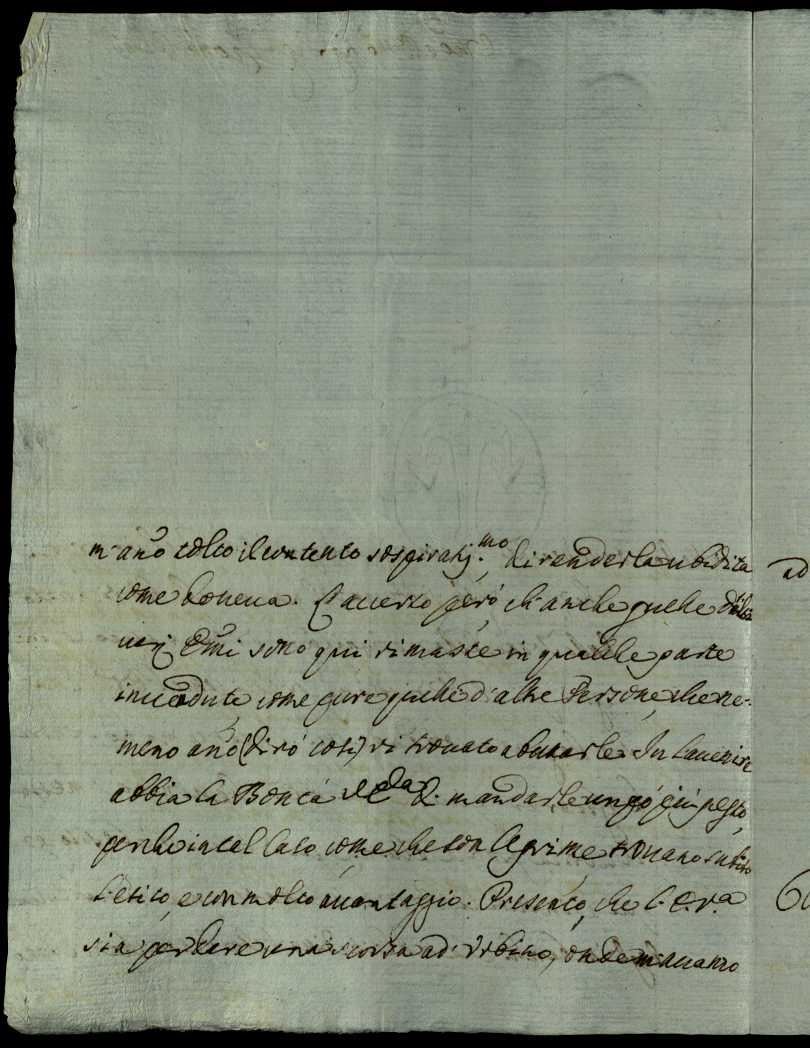 m'ano tolto il contento sospiratis.mo di renderla ubidita
come doueua. L'accerto però ch'anche quelle
mi sono qui rimaste in qualche parte
inuendute come pure quelle d'altre Persone, che ne-
meno ano (dirò così) ritrouato a butarle. In Lauenire
abbia la Bontà di mandarle un pò più presto,
perche in tal Caso come che son le prime, trouano subito
l'esito, e con molto auantaggio. Presento, che l'E.V.ra
sia per dare una scorsa ad Urbino, onde m'auanzo